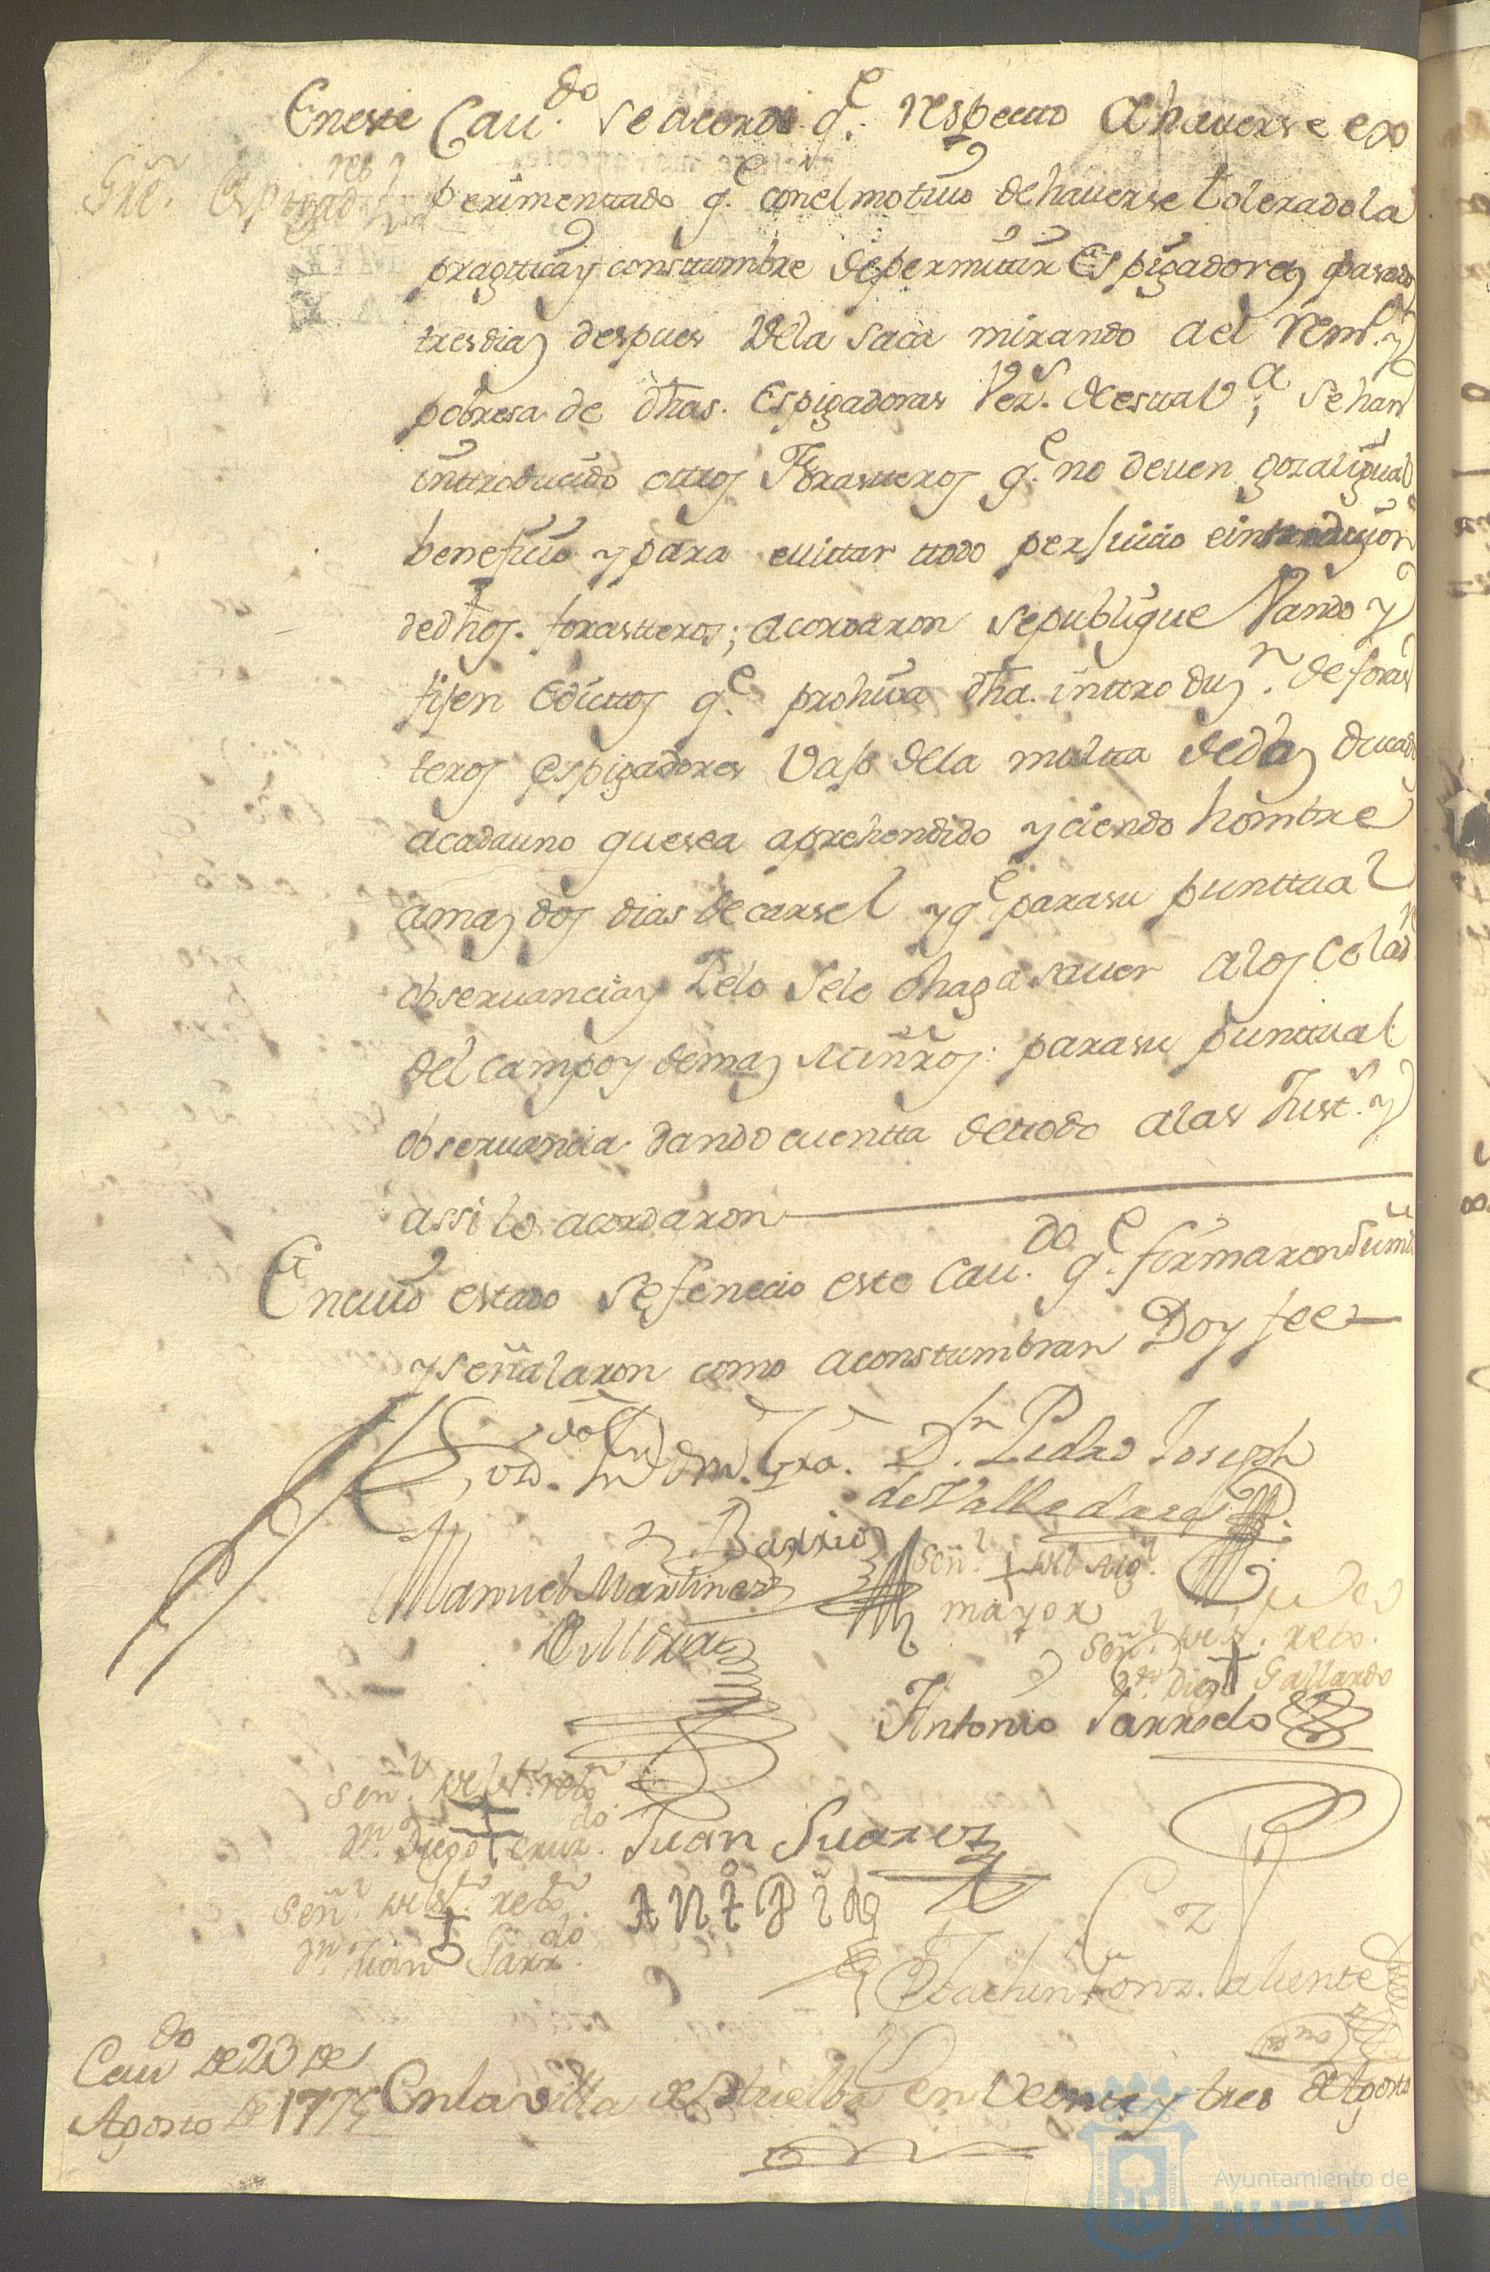 En este Cau.do se acordo q.e respecto a haverse ex
perimenttado q.e con el motivo de haverse tolerado la
pragttica y constumbre de permitir Espigadores pasados
tres dias despues de la saca mirando a el
pobresa de dhas. Espigadoras Vez.s de esta V.a; se han
inttroducido ottros Forastteros q.e no deven gozar igual
beneficio y para evittar ttodo perjuicio e introducion
de dhos. forastteros; acordaron se publique Vando y
fijen Edicttos q.e prohiva dha. inttroduz.n de foras
teros espigadores vajo de la multta de dos ducados
a cada uno que sea aprehendido y ciendo hombre
a mas dos dias de carsel y q.e para su punttual
observancia y Zelo se le haga saver a los Celad.res
del campo y demas Miñros. para su punttual
observancia dando cuentta de ttodo a las Just.s y
assi lo acordaron
En cuio estado se fenecio este Cau.do q.e formaron
y señalaron como aconstumbran Doy fee
D.n Pedro Joseph
de Valledares
Barrios
Manuel Martinez
Señ.l del Alg.l
mayor
Señ.l del S. reto.
D.n Diego Gallardo
Antonio Jarrelo
Señ.l del S.r reto.
D.n Diego Cruz.do
Juan Suarez
Señ.l del S.r reto.
D.n Juan Garr.do
Cau.do de 23 de
Agosto de 1775
En la Villa de Huelba en Veinte y tres de Agosto
Ayuntamiento de
HUELVA